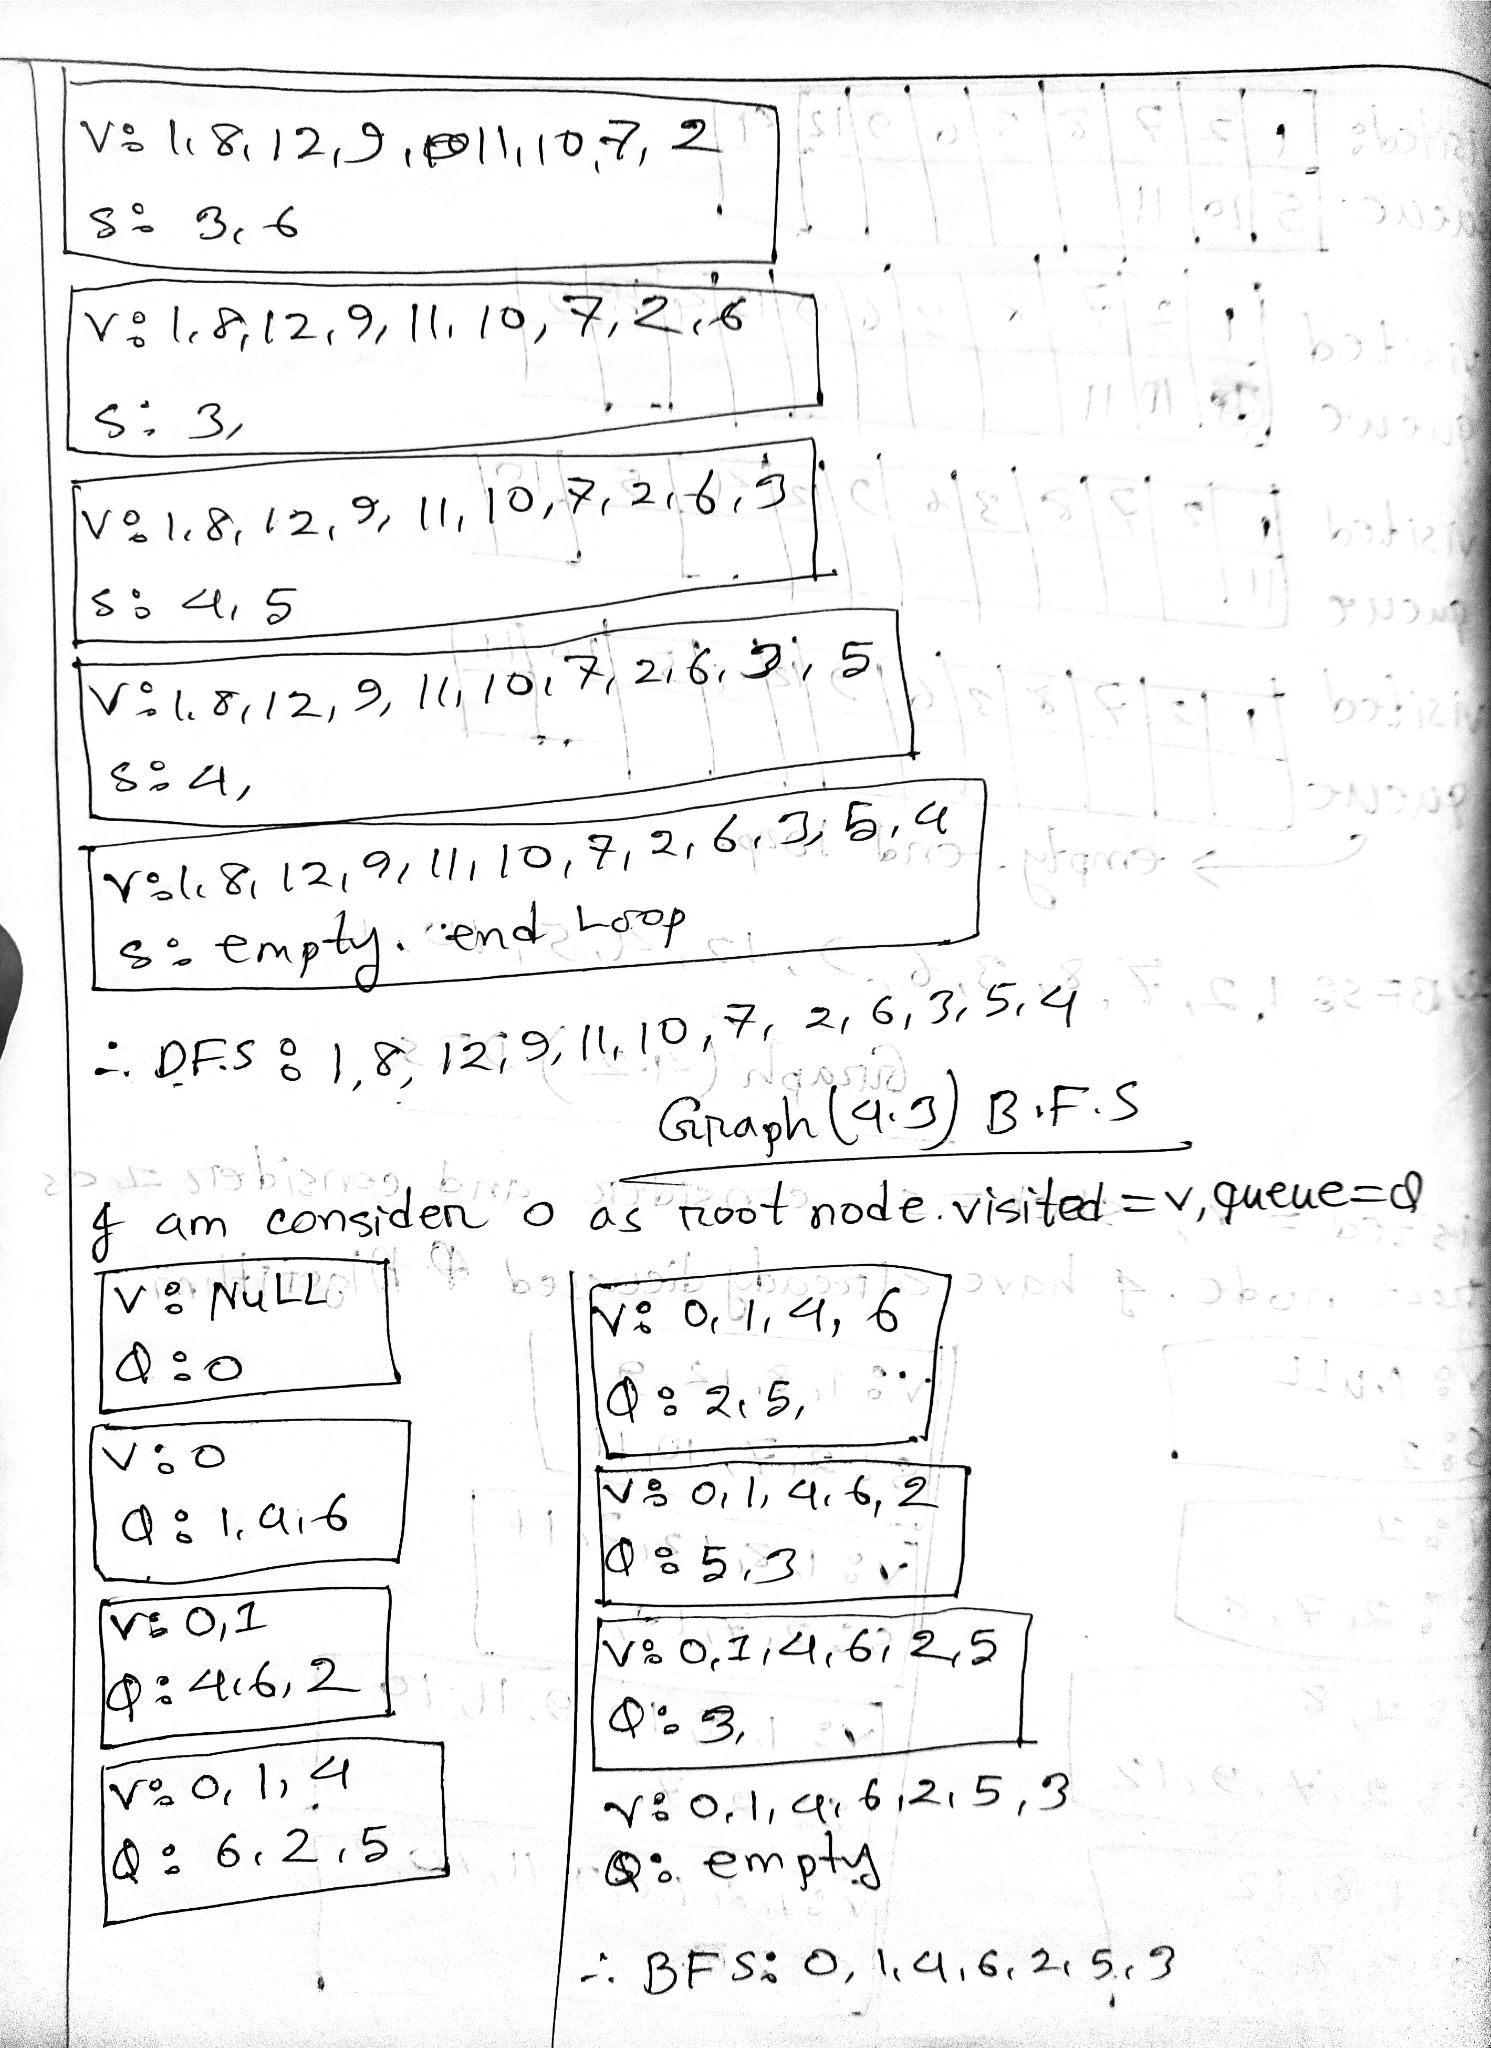 V: 1,8,12,9,11,10,7,2
S: 3,6
V: 1,8,12,9,11,10,7,2,6
S: 3,
V: 1,8,12,9,11,10,7,2,6,3
S: 4,5
V: 1,8,12,9,11,10,7,2,6,3,5
S: 4,
V: 1,8,12,9,11,10,7,2,6,3,5,4
S: empty. end Loop
∴ D.F.S : 1,8,12,9,11,10,7,2,6,3,5,4
Graph (4.3) B.F.S
I am consider 0 as root node. visited = v, queue = Q
V: NULL
Q: 0
V: 0
Q: 1,4,6
V: 0,1
Q: 4,6,2
V: 0,1,4
Q: 6,2,5
V: 0,1,4,6
Q: 2,5,
V: 0,1,4,6,2
Q: 5,3
V: 0,1,4,6,2,5
Q: 3,
V: 0,1,4,6,2,5,3
Q: empty
∴ BFS: 0,1,4,6,2,5,3